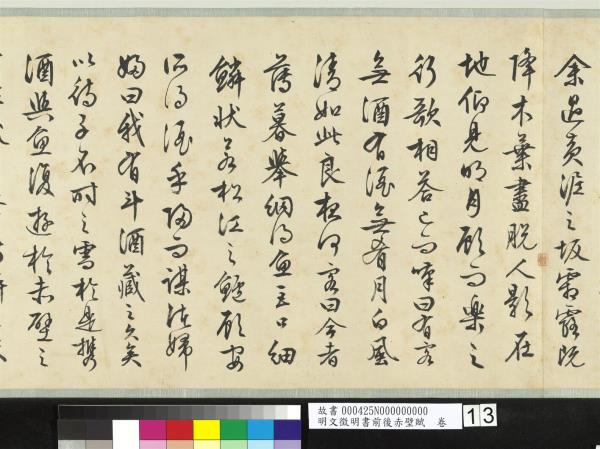 余過黃泥之坂霜露既
降木葉盡脫人影在
地仰見明月顧而樂之
行歌相答已而嘆曰有客
無酒有酒無肴月白風
清如此良夜何客曰今者
薄暮舉網得魚巨口細
鱗狀若松江之鱸顧安
所得酒乎歸而謀諸婦
婦曰我有斗酒藏之久矣
以待子不時之需於是攜
酒與魚復遊於赤壁之
故書 000425N000000000
明文徵明書前後赤壁賦 卷
13